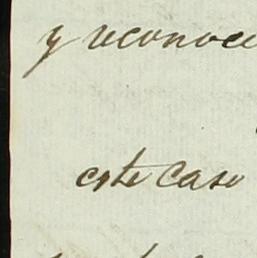 y reconoce
este caso